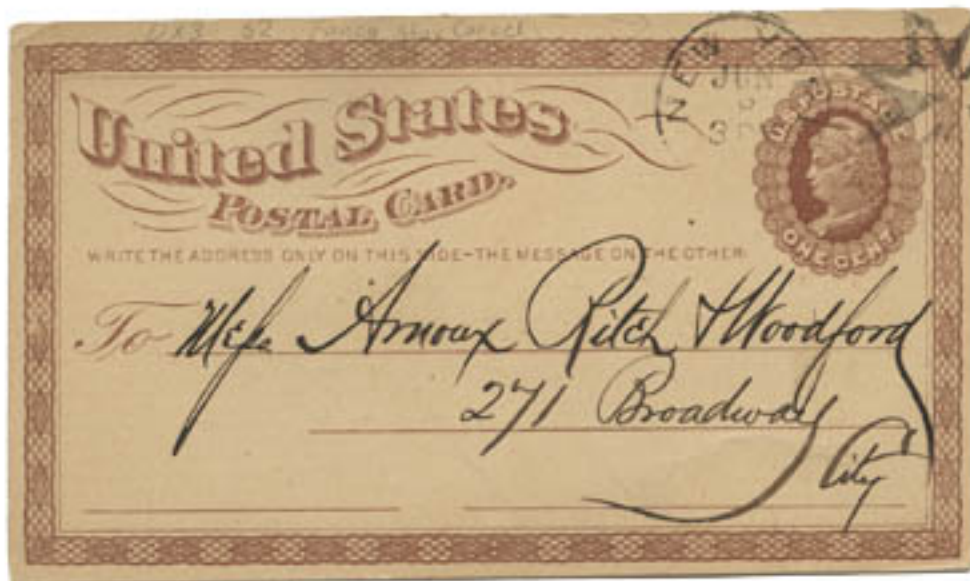 UX3 52 Fancy Star Cancel
NEW YO
JUN
3
U.S. POSTAGE
ONE CENT
United States
POSTAL CARD.
WRITE THE ADDRESS ONLY ON THIS SIDE-THE MESSAGE ON THE OTHER
To Mess Arnoux Ritch & Woodford
271 Broadway
City